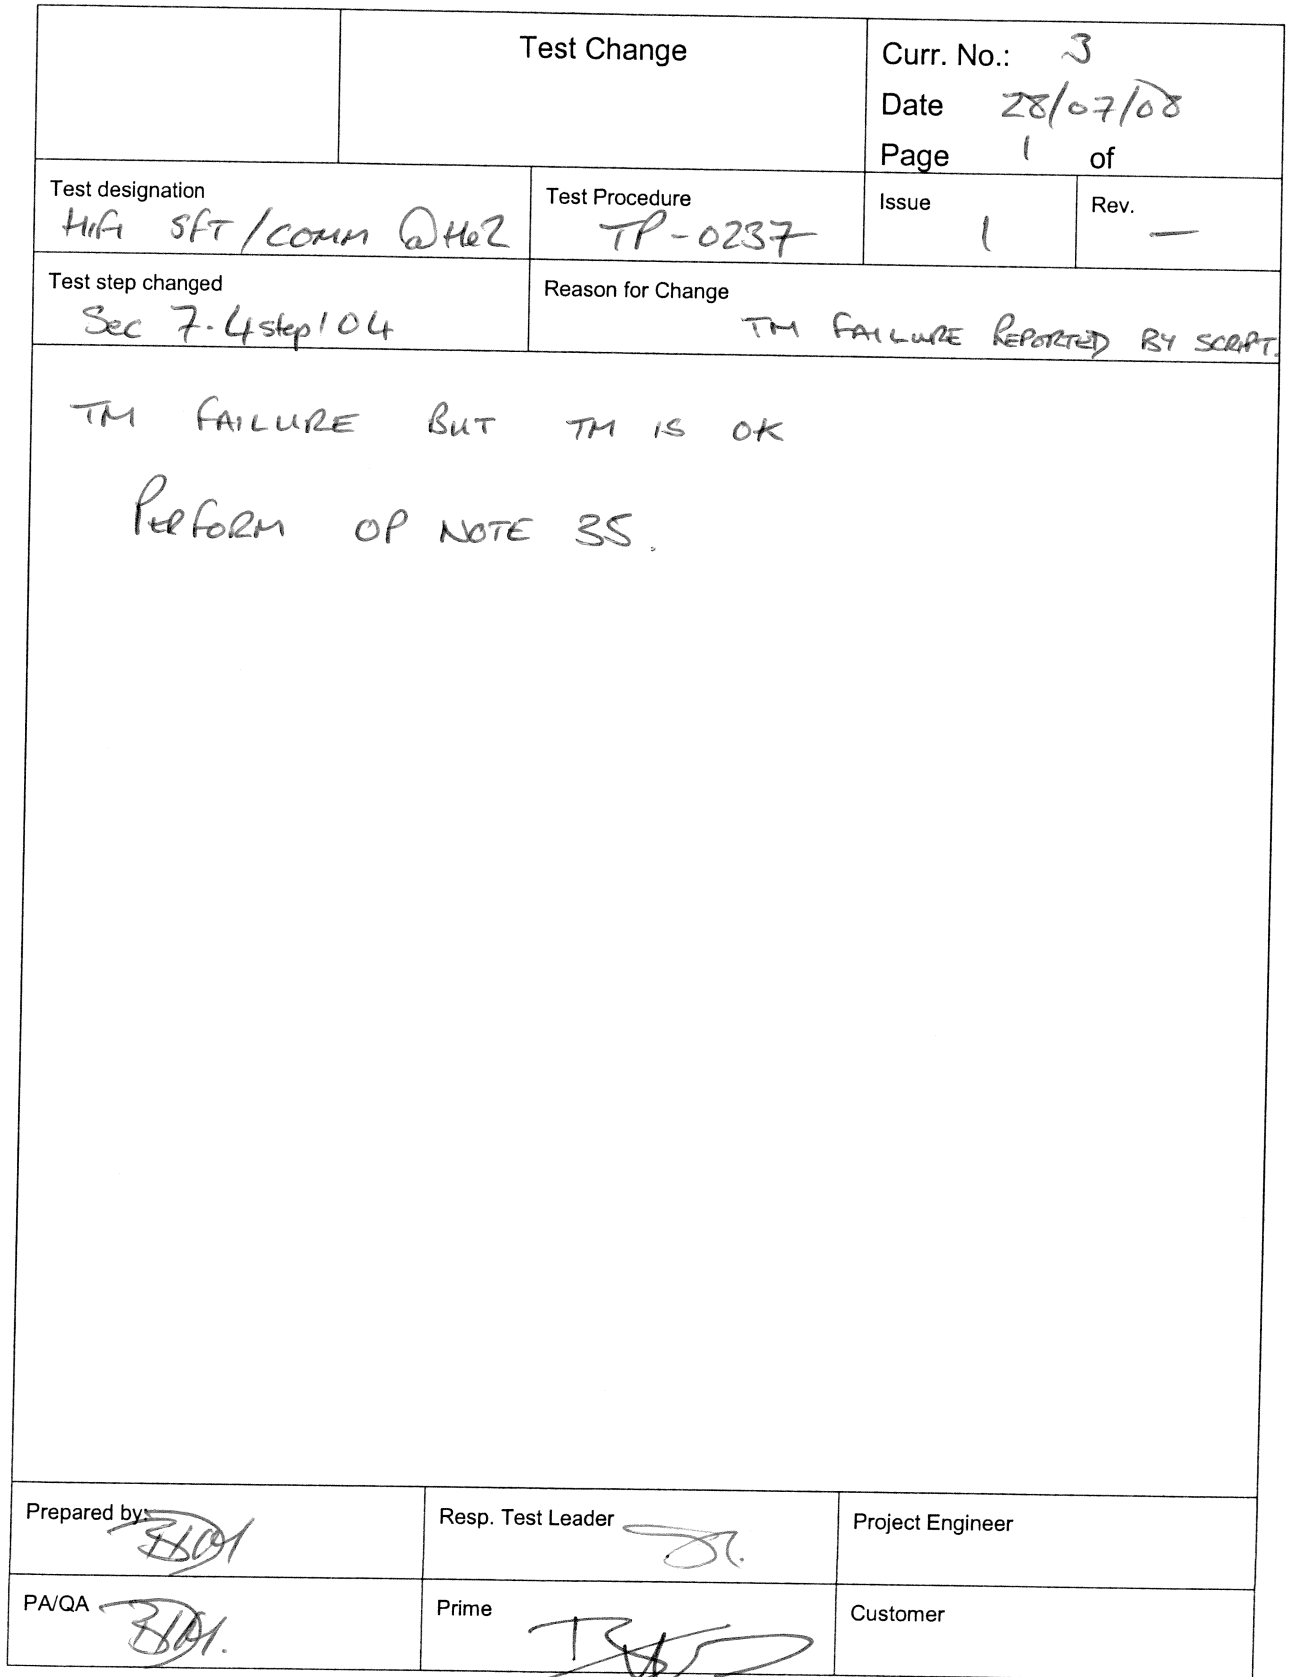 Test Change
Curr. No.: 3
Date 28/07/08
Page 1 of
Test designation
HiFi SFT/COMM @He2
Test Procedure
TP-0237
Issue
1
Rev.
—
Test step changed
Sec 7.4 step 104
Reason for Change
TM FAILURE REPORTED BY SCRIPT.
TM FAILURE BUT TM IS OK
PERFORM OP NOTE 35.
Prepared by:
Resp. Test Leader
Project Engineer
PA/QA
Prime
Customer